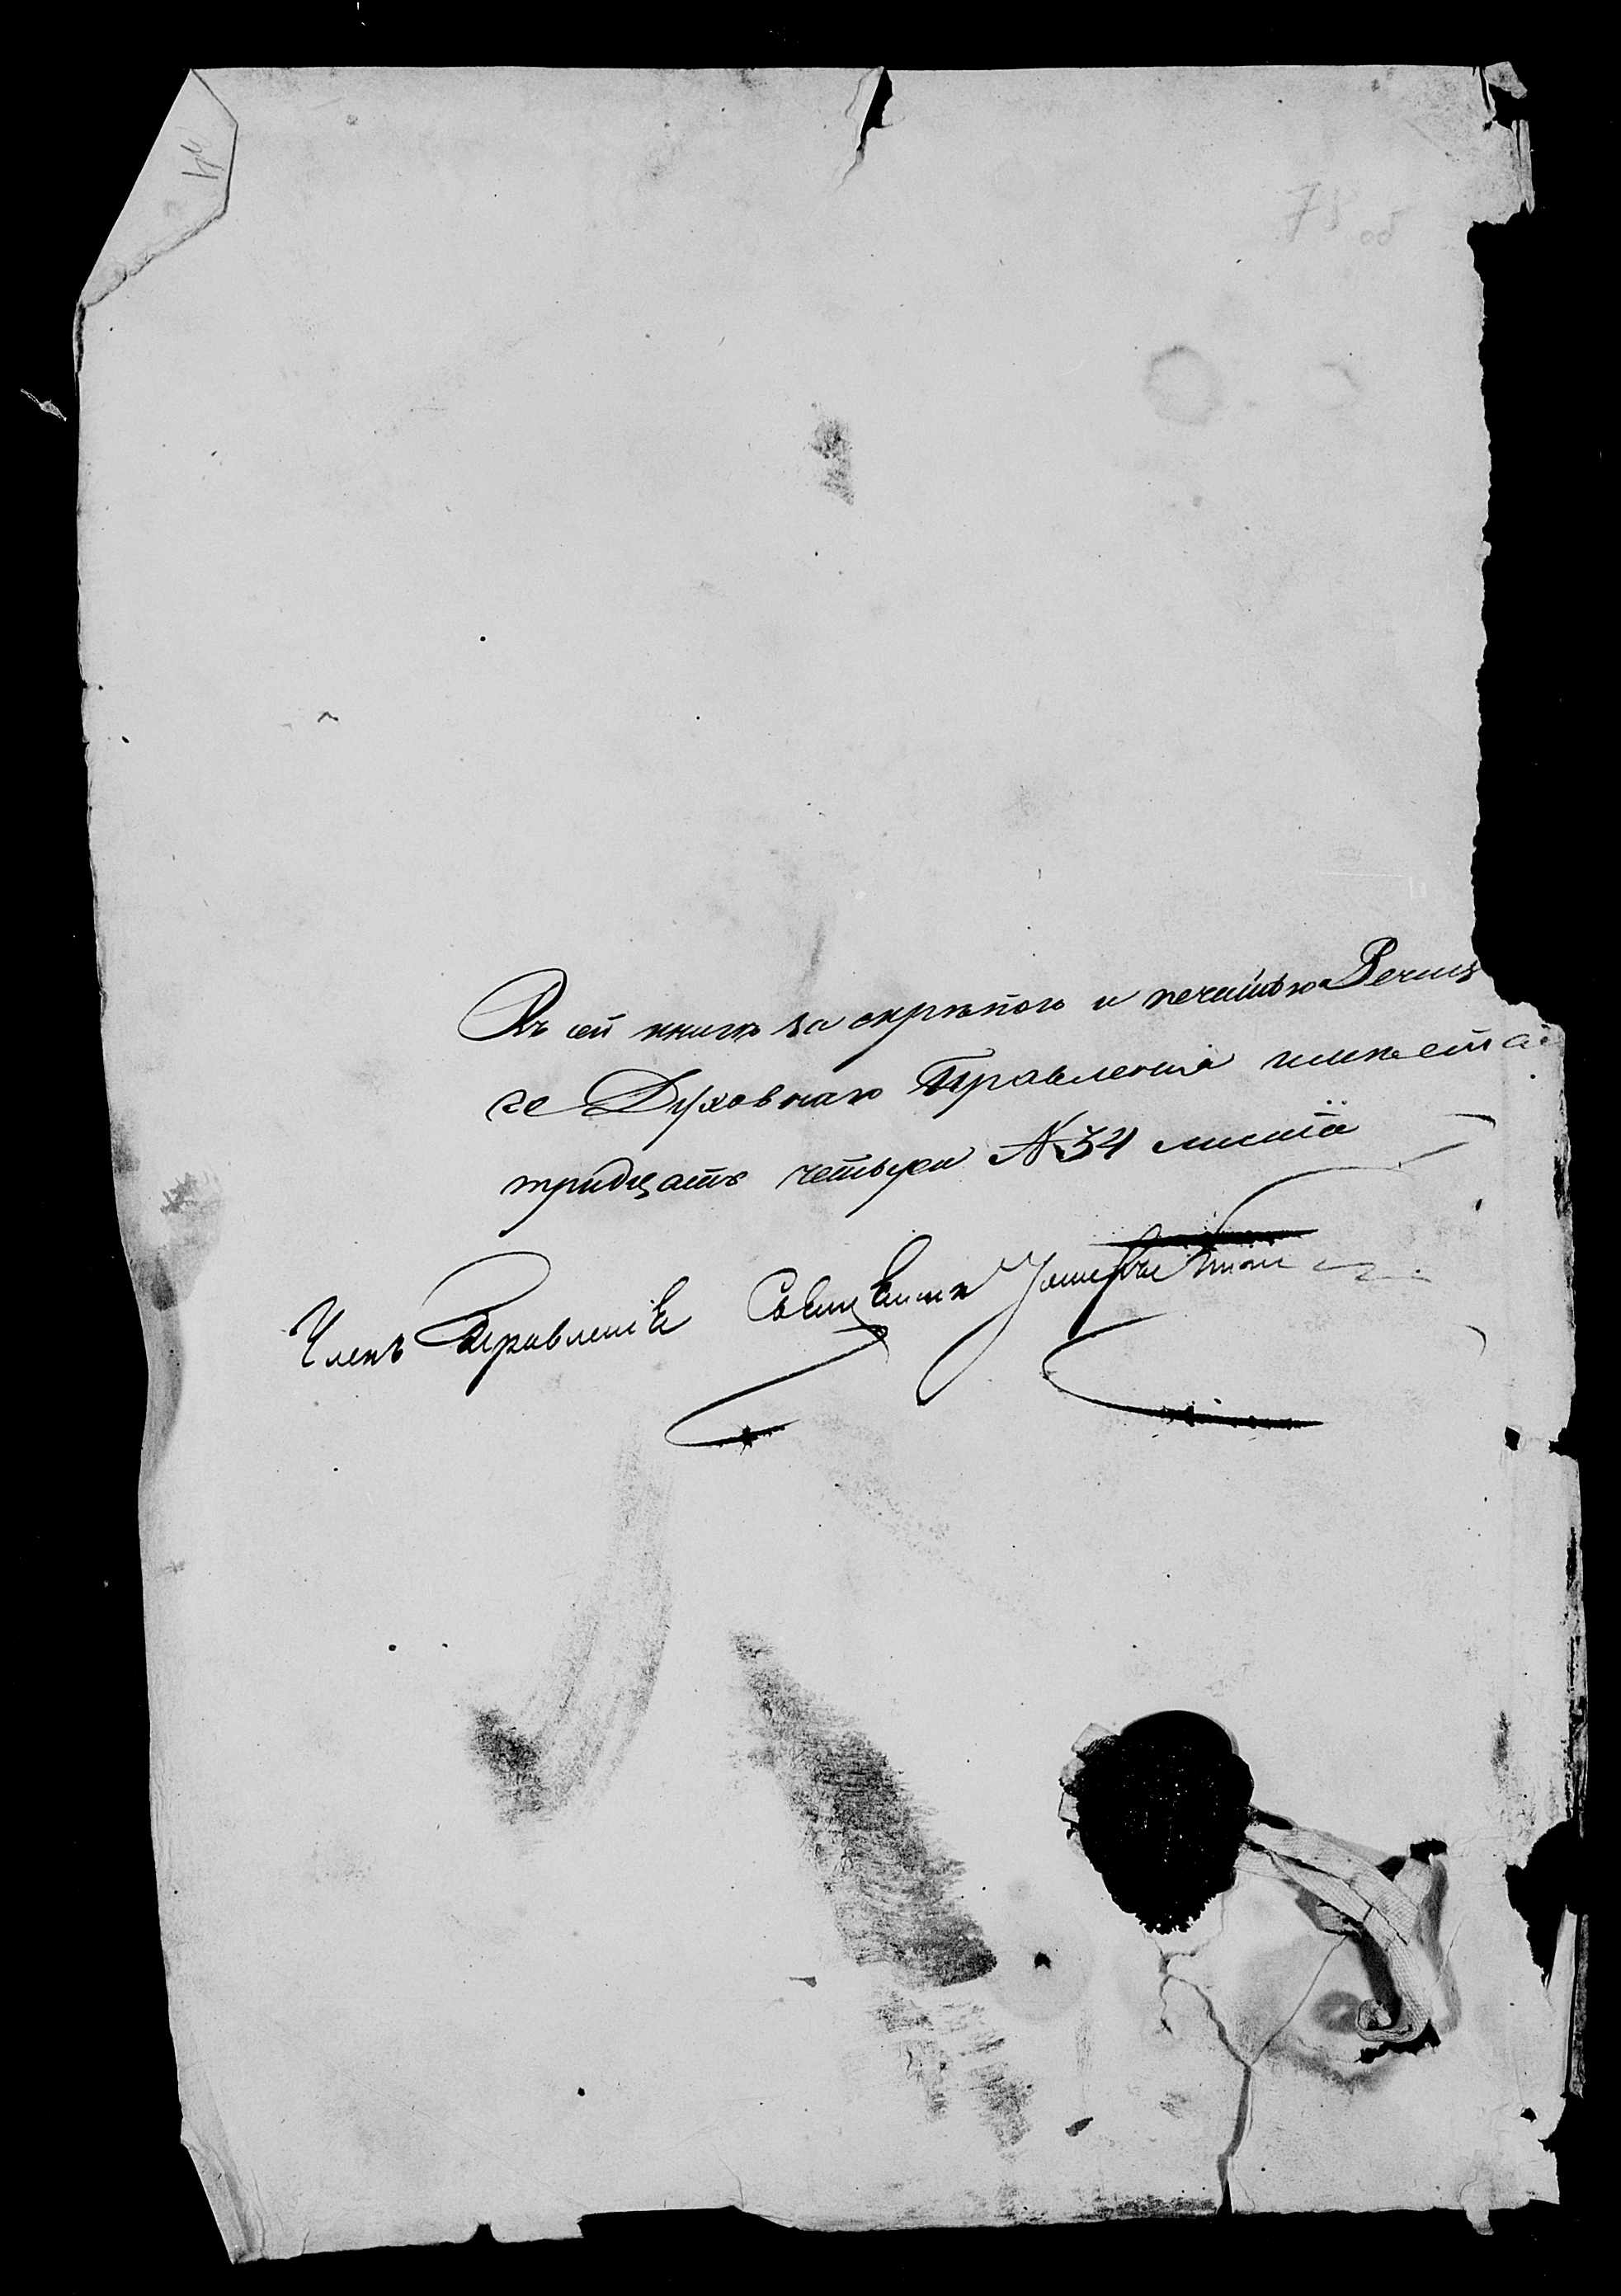 78 об
Въ сей книгѣ за скрѣпою и печатью Речиц
ге Духовнаго Правленія
тридцать четыри № 34 листа
Членъ Правленія Священникъ